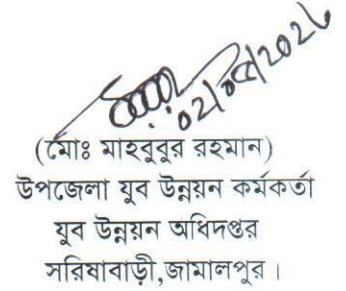 (মোঃ মাহবুবুর রহমান)
উপজেলা যুব উন্নয়ন কর্মকর্তা
যুব উন্নয়ন অধিদপ্তর
সরিষাবাড়ী,জামালপুর।